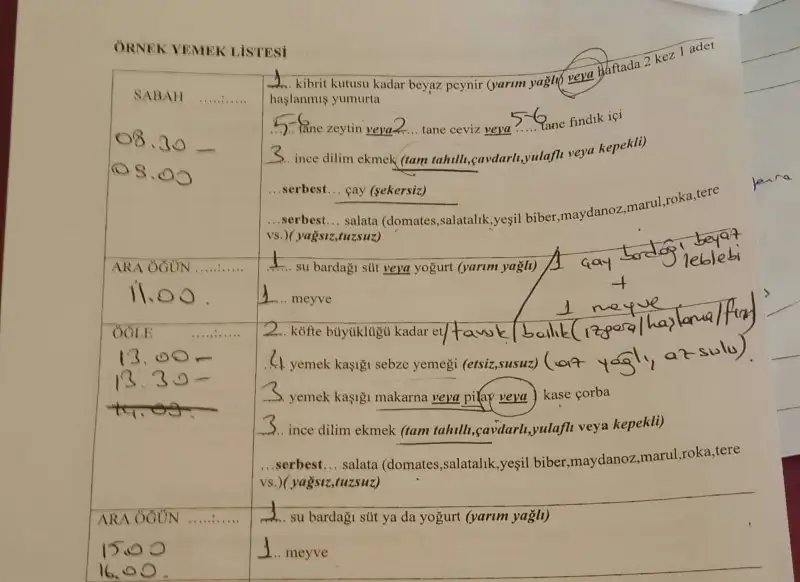 ÖRNEK YEMEK LİSTESİ
SABAH ......:......
08.30 —
09.00
1.. kibrit kutusu kadar beyaz peynir (yarım yağlı) veya haftada 2 kez 1 adet
haşlanmış yumurta
5-6 tane zeytin veya 2... tane ceviz veya 5-6 tane fındık içi
3.. ince dilim ekmek (tam tahıllı,çavdarlı,yulaflı veya kepekli)
...serbest... çay (şekersiz)
...serbest... salata (domates,salatalık,yeşil biber,maydanoz,marul,roka,tere
vs.)( yağsız,tuzsuz)
ARA ÖĞÜN ......:......
11.00.
1.. su bardağı süt veya yoğurt (yarım yağlı)
1... meyve
1 çay bardağı beyaz
leblebi
+
1 meyve
ÖĞLE ......:......
13.00—
13.30—
14.00
2.. köfte büyüklüğü kadar et/tavuk/balık(ızgara/haşlama/fırın)
4 yemek kaşığı sebze yemeği (etsiz,susuz) (az yağlı, az sulu).
3 yemek kaşığı makarna veya pilav veya ) kase çorba
3.. ince dilim ekmek (tam tahıllı,çavdarlı,yulaflı veya kepekli)
...serbest... salata (domates,salatalık,yeşil biber,maydanoz,marul,roka,tere
vs.)( yağsız,tuzsuz)
ARA ÖĞÜN ......:......
15.00
16.00.
1.. su bardağı süt ya da yoğurt (yarım yağlı)
1.. meyve